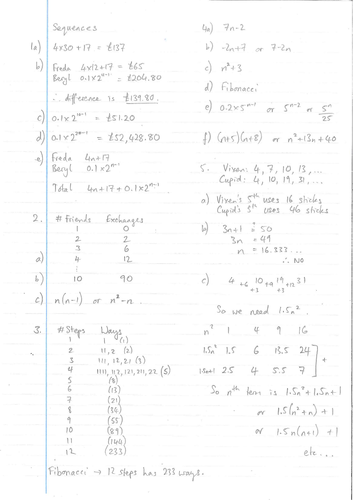 Sequences
1a) 4×30 + 17 = £137
b) Freda 4×12+17 = £65
Beryl 0.1×2¹²⁻¹ = £204.80
∴ difference is £139.80.
c) 0.1×2¹⁰⁻¹ = £51.20
d) 0.1×2²⁰⁻¹ = £52,428.80
e) Freda 4n+17
Beryl 0.1×2ⁿ⁻¹
Total 4n+17+0.1×2ⁿ⁻¹
2. # Friends Exchanges
1 0
2 2
3 6
a) 4 12
⋮
b) 10 90
c) n(n-1) or n²-n
3. # Steps Ways
1 1 (1)
2 11,2 (2)
3 111,12,21 (3)
4 1111,112,121,211,22 (5)
5 (8)
6 (13)
7 (21)
8 (34)
9 (55)
10 (89)
11 (144)
12 (233)
Fibonacci → 12 steps has 233 ways.
4a) 7n-2
b) -2n+7 or 7-2n
c) n²+3
d) Fibonacci
e) 0.2×5ⁿ⁻¹ or 5ⁿ⁻² or 5ⁿ/25
f) (n+5)(n+8) or n²+13n+40
5. Vixen: 4, 7, 10, 13, ...
Cupid: 4, 10, 19, 31, ...
a) Vixen's 5th uses 16 sticks
Cupid's 5th uses 46 sticks
b) 3n+1 = 50
3n = 49
n = 16.333...
∴ NO
c) 4 +6 10 +9 19 +12 31
+3 +3
So we need 1.5n².
n² 1 4 9 16
1.5n² 1.5 6 13.5 24
1.5n+1 2.5 4 5.5 7 +
So nth term is 1.5n²+1.5n+1
or 1.5(n²+n)+1
or 1.5n(n+1)+1
etc...